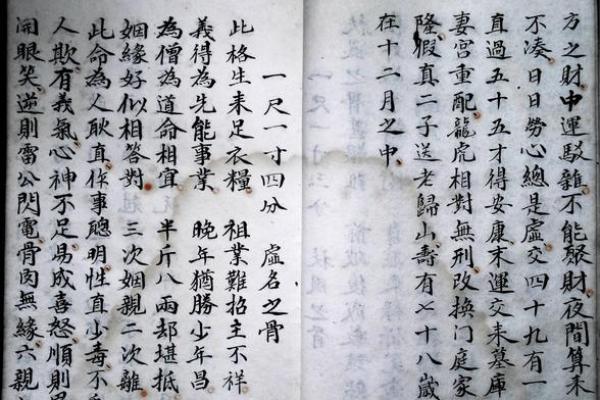 方之財中運駁雜不能聚財夜間算来
不湊日日勞心總是虛交四十九有一
直過五十五才得安康末運交来墓庫
妻宮重配龍虎相對無刑改換門庭家
隆假真二子送老歸山壽有七十八歲
在十二月之中
一尺一寸四分 虛名之骨
此格生来足衣糧 祖業難招主不祥
義得為先能事業 晚年猶勝少年昌
為僧為道命相宜 半斤八兩却堪抵
姻緣好似相答對 三次姻親二次離
此命為人耿直作事聰明性直少毒不
人欺有義氣心神不足易成喜怒順則
開眼笑逆則雷公閃電骨肉無緣六親